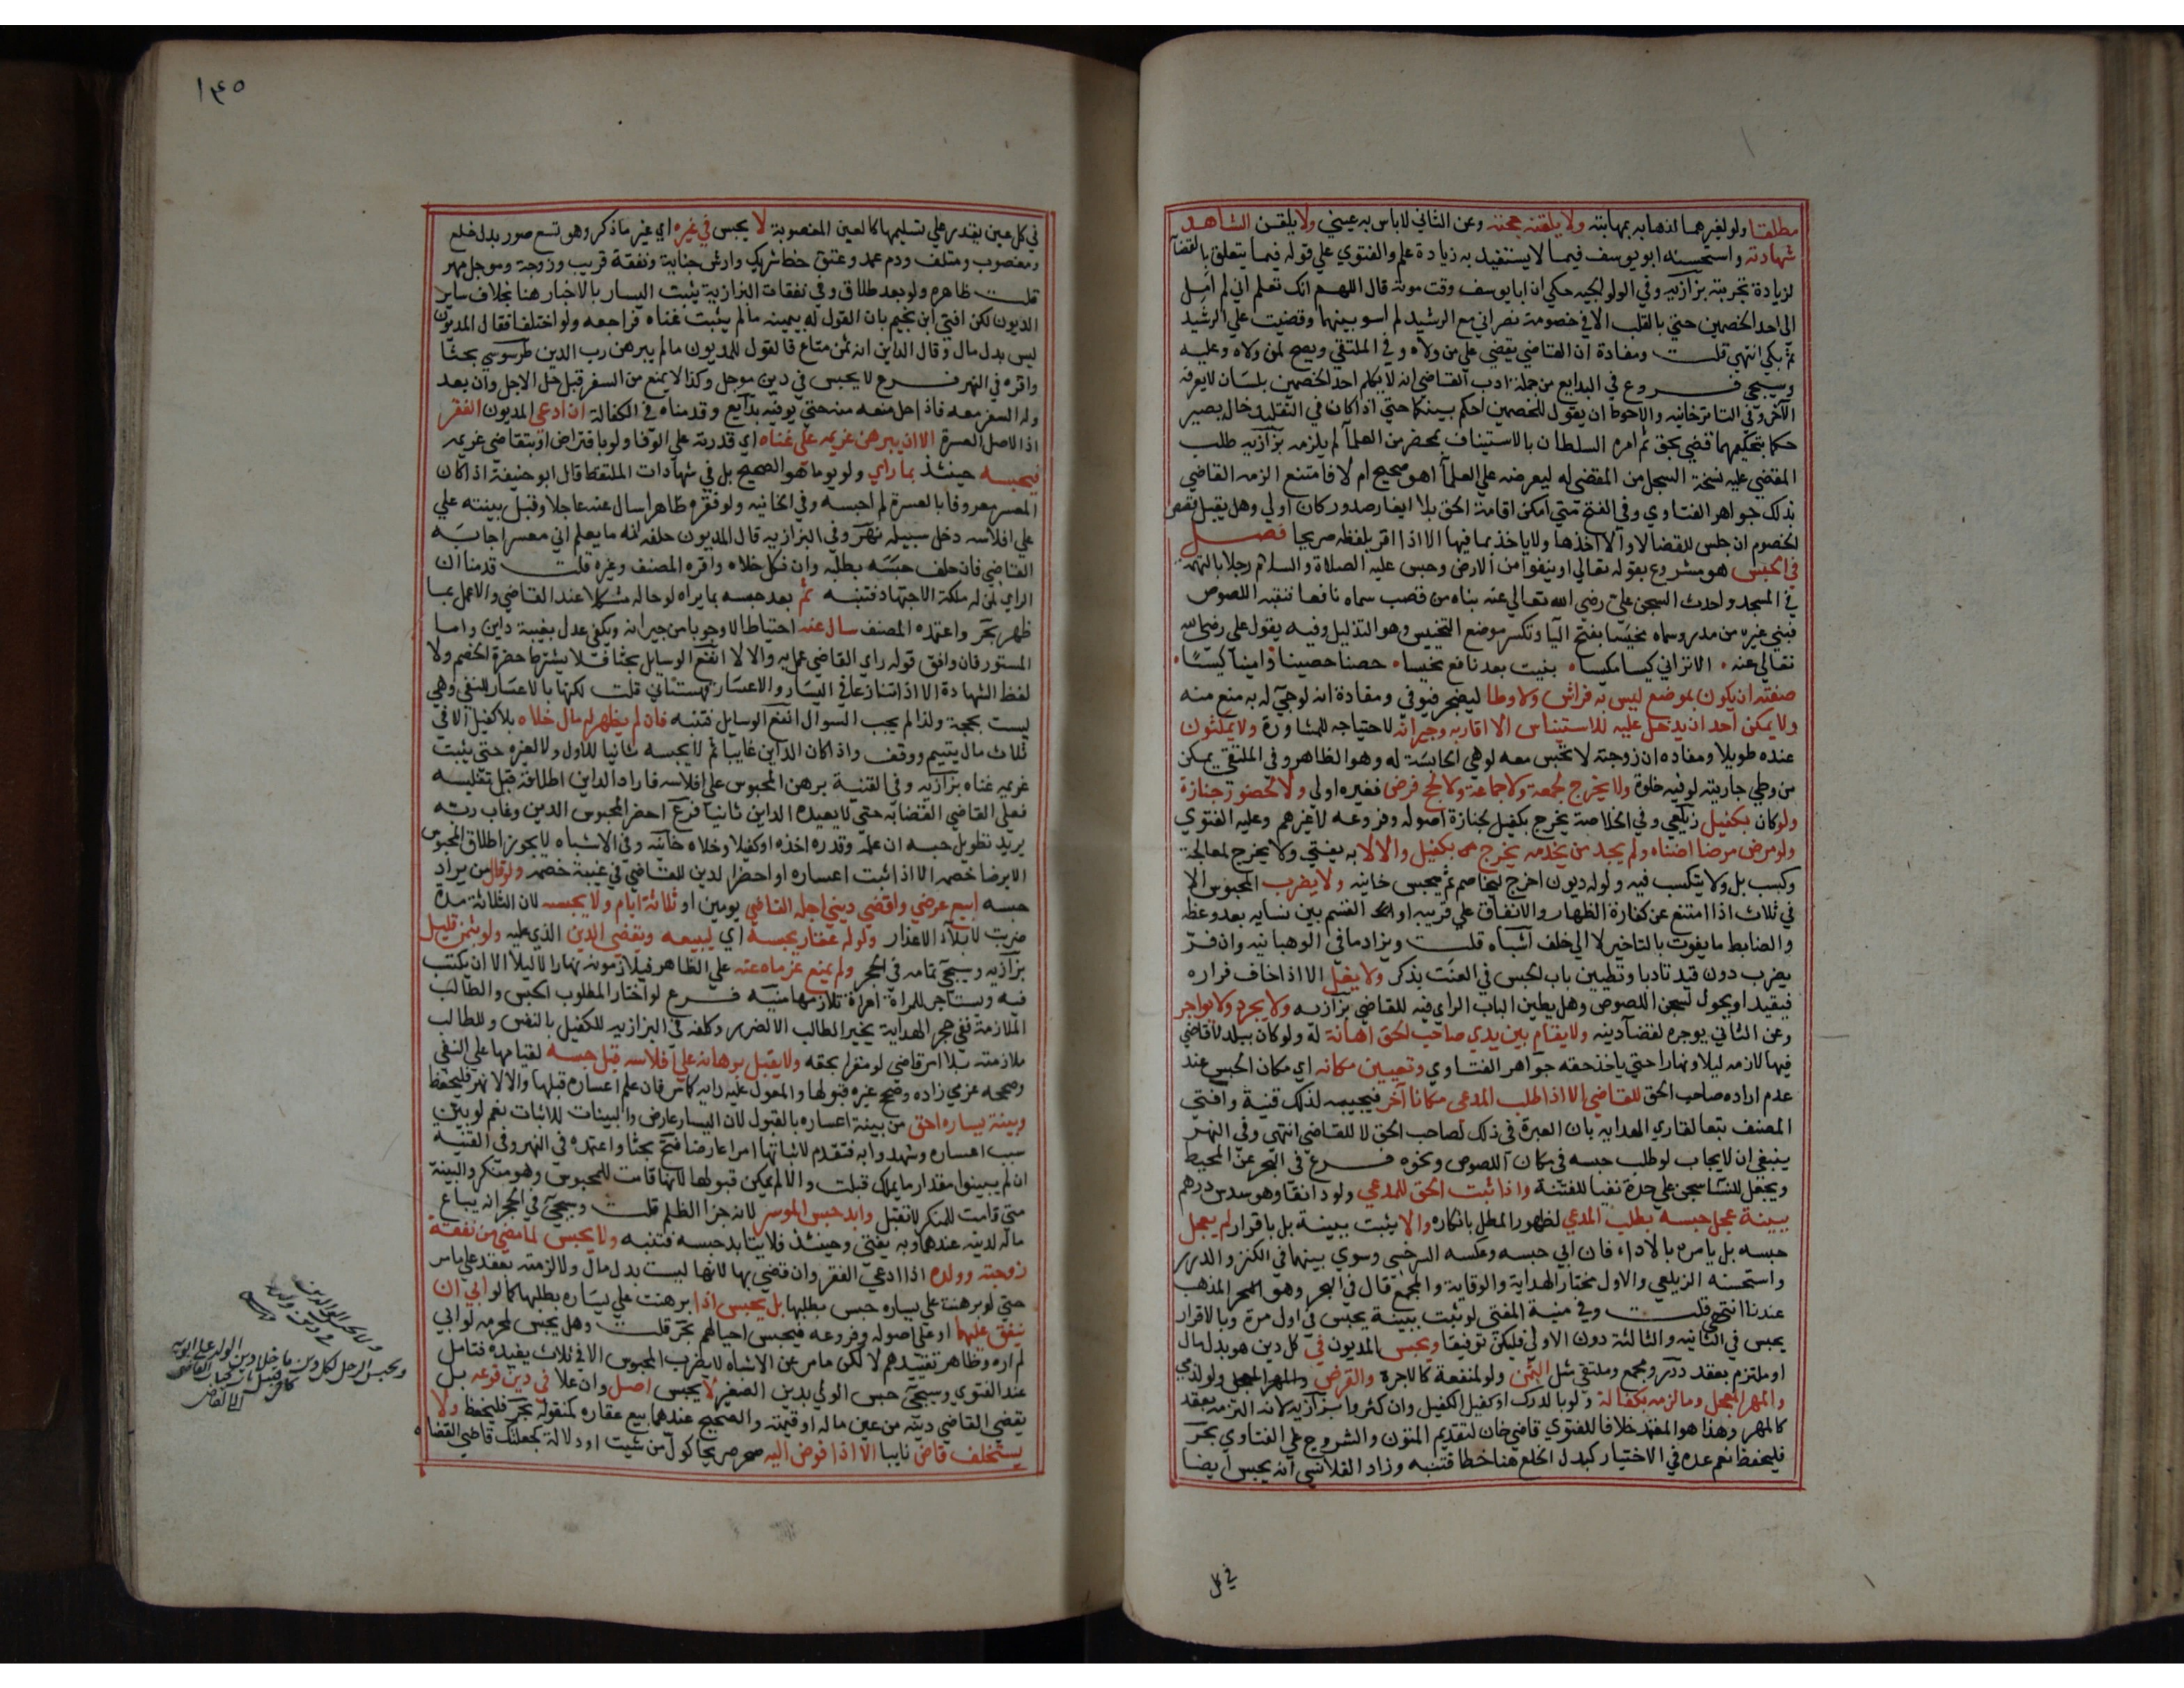 مطلقا ولو لغيرهما لذهابه بمهابته ولا يلقنه حجته وعن الثاني لا باس به عيني ولا يلقن الشاهد
شهادته واستحسنه ابو يوسف فيما لا يستفيد به زيادة علم والفتوي علي قوله فيما يتعلق بالقضآ
لزيادة تجربته بزازيه وفي الولوالجيه حكي ان ابا يوسف وقت موته قال اللهم انك تعلم اني لم امل
الى احد الخصمين حتي بالقلب الا في خصومة نصراني مع الرشيد لم اسو بينهما وقضيت علي الرشيد
ثم بكي انتهي قلت ومفادة ان القاضي يقضي علي من ولاه وفي الملتقي ويصح لمن ولاه وعليه
وسيجي فروع في البدايع من جملة ادب القاضي انه لا يكلم احد الخصمين بلسان لا يعرفه
الآخر وفي التاترخانيه والاحوط ان يقول للخصمين احكم بينكما حتي اذا كان في التقليد خال بصير
حكما بتحكيمهما قضي بحق ثم امره السلطان بالاستيناف بمحضر من العلمآ لم يلزمه بزازيه طلب
المقضي عليه نسخة السجل من المقضي له ليعرضه علي العلمآ اهو صحيح ام لا فامتنع الزمه القاضي
بذلك جواهر الفتاوي وفي الفتح متي امكن اقامة الحق بلا ايغار صدور كان اولي وهل يقبل قصص
الخصوم ان جلس للقضا لا والا اخذها ولا ياخذ بما فيها الا اذا اقر بلفظه صريحا فصل
في الحبس هو مشروع بقوله تعالي او ينفوا من الارض وحبس عليه الصلاة والسلام رجلا بالتهمة
في المسجد واحدث السجن علي رضي الله تعالي عنه بناه من قصب سماه نافعا فنقبه اللصوص
فبني غيره من مدر وسماه مخيسا بفتح اليآ وتكسر موضع التخييس وهو التذليل وفيه يقول علي رضي الله
تعالي عنه الا تراني كيسا مكيسا بنيت بعد نافع مخيسا حصنا حصينا وامينا كيسا
صفته ان يكون بموضع ليس به فراش ولا وطا ليضجر فيوفي ومفادة انه لو جي له به منع منه
ولا يمكن احد ان يدخل عليه للاستيناس الا اقاربه وجيرانه لاحتياجه للمشاورة ولا يمكثون
عنده طويلا ومفاده ان زوجته لا تحبس معه لو هي الحابسة له وهو الظاهر وفي الملتقي يمكن
من وطي جاريته لو فيه خلوة ولا يخرج لجمعة ولا جماعة ولا لحج فرض فغيره اولي ولا لحضور جنازة
ولو كان بكفيل زيلعي وفي الخلاصة يخرج بكفيل لجنازة اصوله وفروعه لا غيرهم وعليه الفتوي
ولو مرض مرضا اضناه ولم يجد من يخدمه يخرج بكفيل والا لا به يفتي ولا يخرج لمعالجة
وكسب بل ولا يتكسب فيه ولو له ديون اخرج ليخاصم ثم يحبس خانيه ولا يضرب المحبوس الا
في ثلاث اذا امتنع عن كفارة الظهار والانفاق علي قريبه او القسم بين نسايه بعد وعظه
والضابط ما يفوت بالتاخير لا الي خلف اشباه قلت ويزاد ما في الوهبانيه وان فر
يضرب دون قيد تادبا وتطيين باب الحبس في العنت يذكر ولا يغل الا اذا خاف فراره
فيقيد او يحول لسجن اللصوص وهل يطين الباب الراي فيه للقاضي بزازيه ولا يجرد ولا يواجر
وعن الثاني يوجره لقضآ دينه ولا يقام بين يدي صاحب الحق اهانة له ولو كان ببلد لا قاضي
فيها لازمه ليلا ونهارا حتي ياخذ حقه جواهر الفتاوي وتعيين مكانه اي مكان الحبس عند
عدم اراده صاحب الحق للقاضي الا اذا طلب المدعي مكانا آخر فيجيبه لذلك قنية وافتي
المصنف تبعا لقاري الهدايه بان العبرة في ذلك لصاحب الحق لا للقاضي انتهي وفي النهر
ينبغي ان لا يجاب لو طلب حبسه في مكان اللصوص ونحوه فرع في البحر عن المحيط
ويجعل للنسا سجن علي حدة نفيا للفتنة واذا ثبت الحق للمدعي ولو دانقا وهو سدس درهم
ببينة عجل حبسه بطلب المدعي لظهور المطل بانكاره والا يثبت ببينة بل باقرار لم يعجل
حبسه بل يامره بالاداء فان ابي حبسه وعكسه السرخسي وسوي بينهما في الكنز والدرر
واستحسنه الزيلعي والاول مختار الهداية والوقاية والمجمع قال في البحر وهو المذهب
عندنا انتهي قلت وفي منية المفتي لو ثبت ببينة يحبس في اول مرة وبالاقرار
يحبس في الثانيه والثالثة دون الاولي فليكن توفيقا ويحبس المديون في كل دين هو بدل مال
او ملتزم بعقد درر ومجمع وملتقي مثل الثمن ولو لمنفعة كالاجرة والقرض ولو لذمي
والمهر المعجل وما لزمه بكفالة ولو بالدرك او كفيل الكفيل وان كثروا بزازيه لانه التزمه بعقد
كالمهر وهذا هو المعتمد خلافا لفتوي قاضي خان لتقديم المتون والشروح علي الفتاوي بحر
فليحفظ نعم عده في الاختيار كبدل الخلع هنا خطا فتنبه وزاد القلانسي انه يحبس ايضا
في كل
١٤٥
في كل عين يقدر علي تسليمها كالعين المغصوبة لا يحبس في غيره اي غير ما ذكر وهو تسع صور بدل خلع
ومغصوب ومتلف ودم عمد وعتق حظ شريك وارش جناية ونفقة قريب وزوجة وموجل مهر
قلت ظاهره ولو بعد طلاق وفي نفقات البزازية يثبت اليسار بالاخبار هنا بخلاف ساير
الديون لكن افتي ابن نجيم بان القول له بيمينه ما لم يثبت غناه فراجعه ولو اختلفا فقال المديون
ليس بدل مال وقال الداين انه ثمن متاع فالقول للمديون ما لم يبرهن رب الدين طرسوسي بحثا
واقره في النهر فرع لا يحبس في دين موجل وكذا لا يمنع من السفر قبل حل الاجل وان بعد
وله السفر معه فاذا حل منعه منه حتي يوفيه بدايع وقدمناه في الكفالة ان ادعي المديون الفقر
اذ الاصل العسرة الا ان يبرهن غريمه علي غناه اي قدرته علي الوفا ولو باقتراض او بتقاضي غريمه
فيحبسه حينئذ بما راي ولو يوما هو الصحيح بل في شهادات الملتقط قال ابو حنيفة اذا كان
المعسر معروفا بالعسرة لم احبسه وفي الخانيه ولو فقره ظاهرا سال عنه عاجلا وقبل بينته علي
علي افلاسه دخل سبيله نهر وفي البزازيه قال المديون حلفه انه ما يعلم اني معسر اجابه
القاضي فان حلف حبسه بطلبه وان نكل خلاه واقره المصنف وغيره قلت قدمنا ان
الراي لمن له ملكة الاجتهاد فتنبه ثم بعد حبسه بما يراه لو حاله مشكلا عند القاضي والا عمل بما
ظهر بحر واعتمده المصنف سال عنه احتياطا لا وجوبا من جيرانه ويكفي عدل بغيبة داين واما
المستور فان وافق قوله راي القاضي عمل به والا لا انفع الوسايل بحثا فلا يشترط حضرة الخصم ولا
لفظ الشهادة الا اذا تنازعا في اليسار والاعسار قهستاني قلت لكنها بالاعسار للنفي وهي
ليست بحجة ولذا لم يجب السوال انفع الوسايل فتنبه فان لم يظهر له مال خلاه بلا كفيل الا في
ثلاث مال يتيم ووقف واذا كان الداين غايبا ثم لا يحبسه ثانيا للاول ولا لغيره حتي يثبت
غريمه غناه بزازيه وفي القنية برهن المحبوس علي افلاسه فاراد الداين اطلاقه قبل تفليسه
فعلي القاضي القضا به حتي لا يعيده الداين ثانيا فرع احضر المحبوس الدين وغاب ربه
يريد تطويل حبسه ان علمه وقدره اخذه او كفيلا وخلاه خانيه وفي الاشباه لا يجوز اطلاق المحبوس
الا برضا خصمه الا اذا اثبت اعساره او احضر الدين للقاضي في غيبة خصمه ولو قال من يراد
حبسه ابيع عرضي واقضي ديني اجله القاضي يومين او ثلاثة ايام ولا يحبسه لان الثلاثة مدة
ضربت لابلاء الاعذار ولو له عقار يحبسه اي ليبيعه ويقضي الدين الذي عليه ولو بثمن قليل
بزازيه وسيجي تمامه في الحجر ولم يمنع غرماه عنه علي الظاهر فيلازمونه نهارا لا ليلا الا ان يكتسب
فيه ويستاجر للمراة امراة تلازمها منيه فرع لو اختار المطلوب الحبس والطالب
الملازمة ففي حجر الهداية يخير الطالب الا لضرر وكلفه في البزازيه للكفيل بالنفس وللطالب
ملازمته بلا امر قاضي لو مقرا بحقه ولا يقبل برهانه علي افلاسه قبل حبسه لقيامها علي النفي
وصححه عزمي زاده وصحح غيره قبولها والمعول عليه رايه كما مر فان علم اعساره قبلها والا لا نهر فليحفظ
وبينة يساره احق من بينة اعساره بالقبول لان اليسار عارض والبينات للاثبات نعم لو بين
سبب اعساره وشهدوا به فتقدم لاثباتها امرا عارضا فتح بحثا واعتمده في النهر وفي القنيه
ان لم يبينوا مقدار ما يملك قبلت والا لم يمكن قبولها لانها قامت للمحبوس وهو منكر والبينة
متي قامت للمنكر لا تقبل وابد حبس الموسر لانه جزا الظلم قلت وسيجي في الحجر انه يباع
ماله لدينه عندهما وبه يفتي وحينئذ فلا يتابد حبسه فتنبه ولا يحبس لما مضي من نفقة
زوجته وولده اذا ادعي الفقر وان قضي بها لانها ليست بدل مال ولا لزمته بعقد علي ما مر
حتي لو برهنت علي يساره حبس بطلبها بل يحبس اذا برهنت علي يساره بطلبها كما لو ابي ان
ينفق عليهما او علي اصوله وفروعه فيحبس احيا لهم بحر قلت وهل يحبس لمحرمه لو ابي
لم اره وظاهر تقييدهم لا لكن ما مر عن الاشباه لا يضرب المحبوس الا في ثلاث يفيده فتامل
عند الفتوي وسيجي حبس الولي بدين الصغير لا يحبس اصل وان علا في دين فرعه بل
يقضي القاضي دينه من عين ماله او قيمته والصحيح عندهما بيع عقاره كمنقوله بحر فليحفظ ولا
يستخلف قاض نايبا الا اذا فوض اليه صريحا كول من شيت او دلالة كجعلتك قاضي القضاه